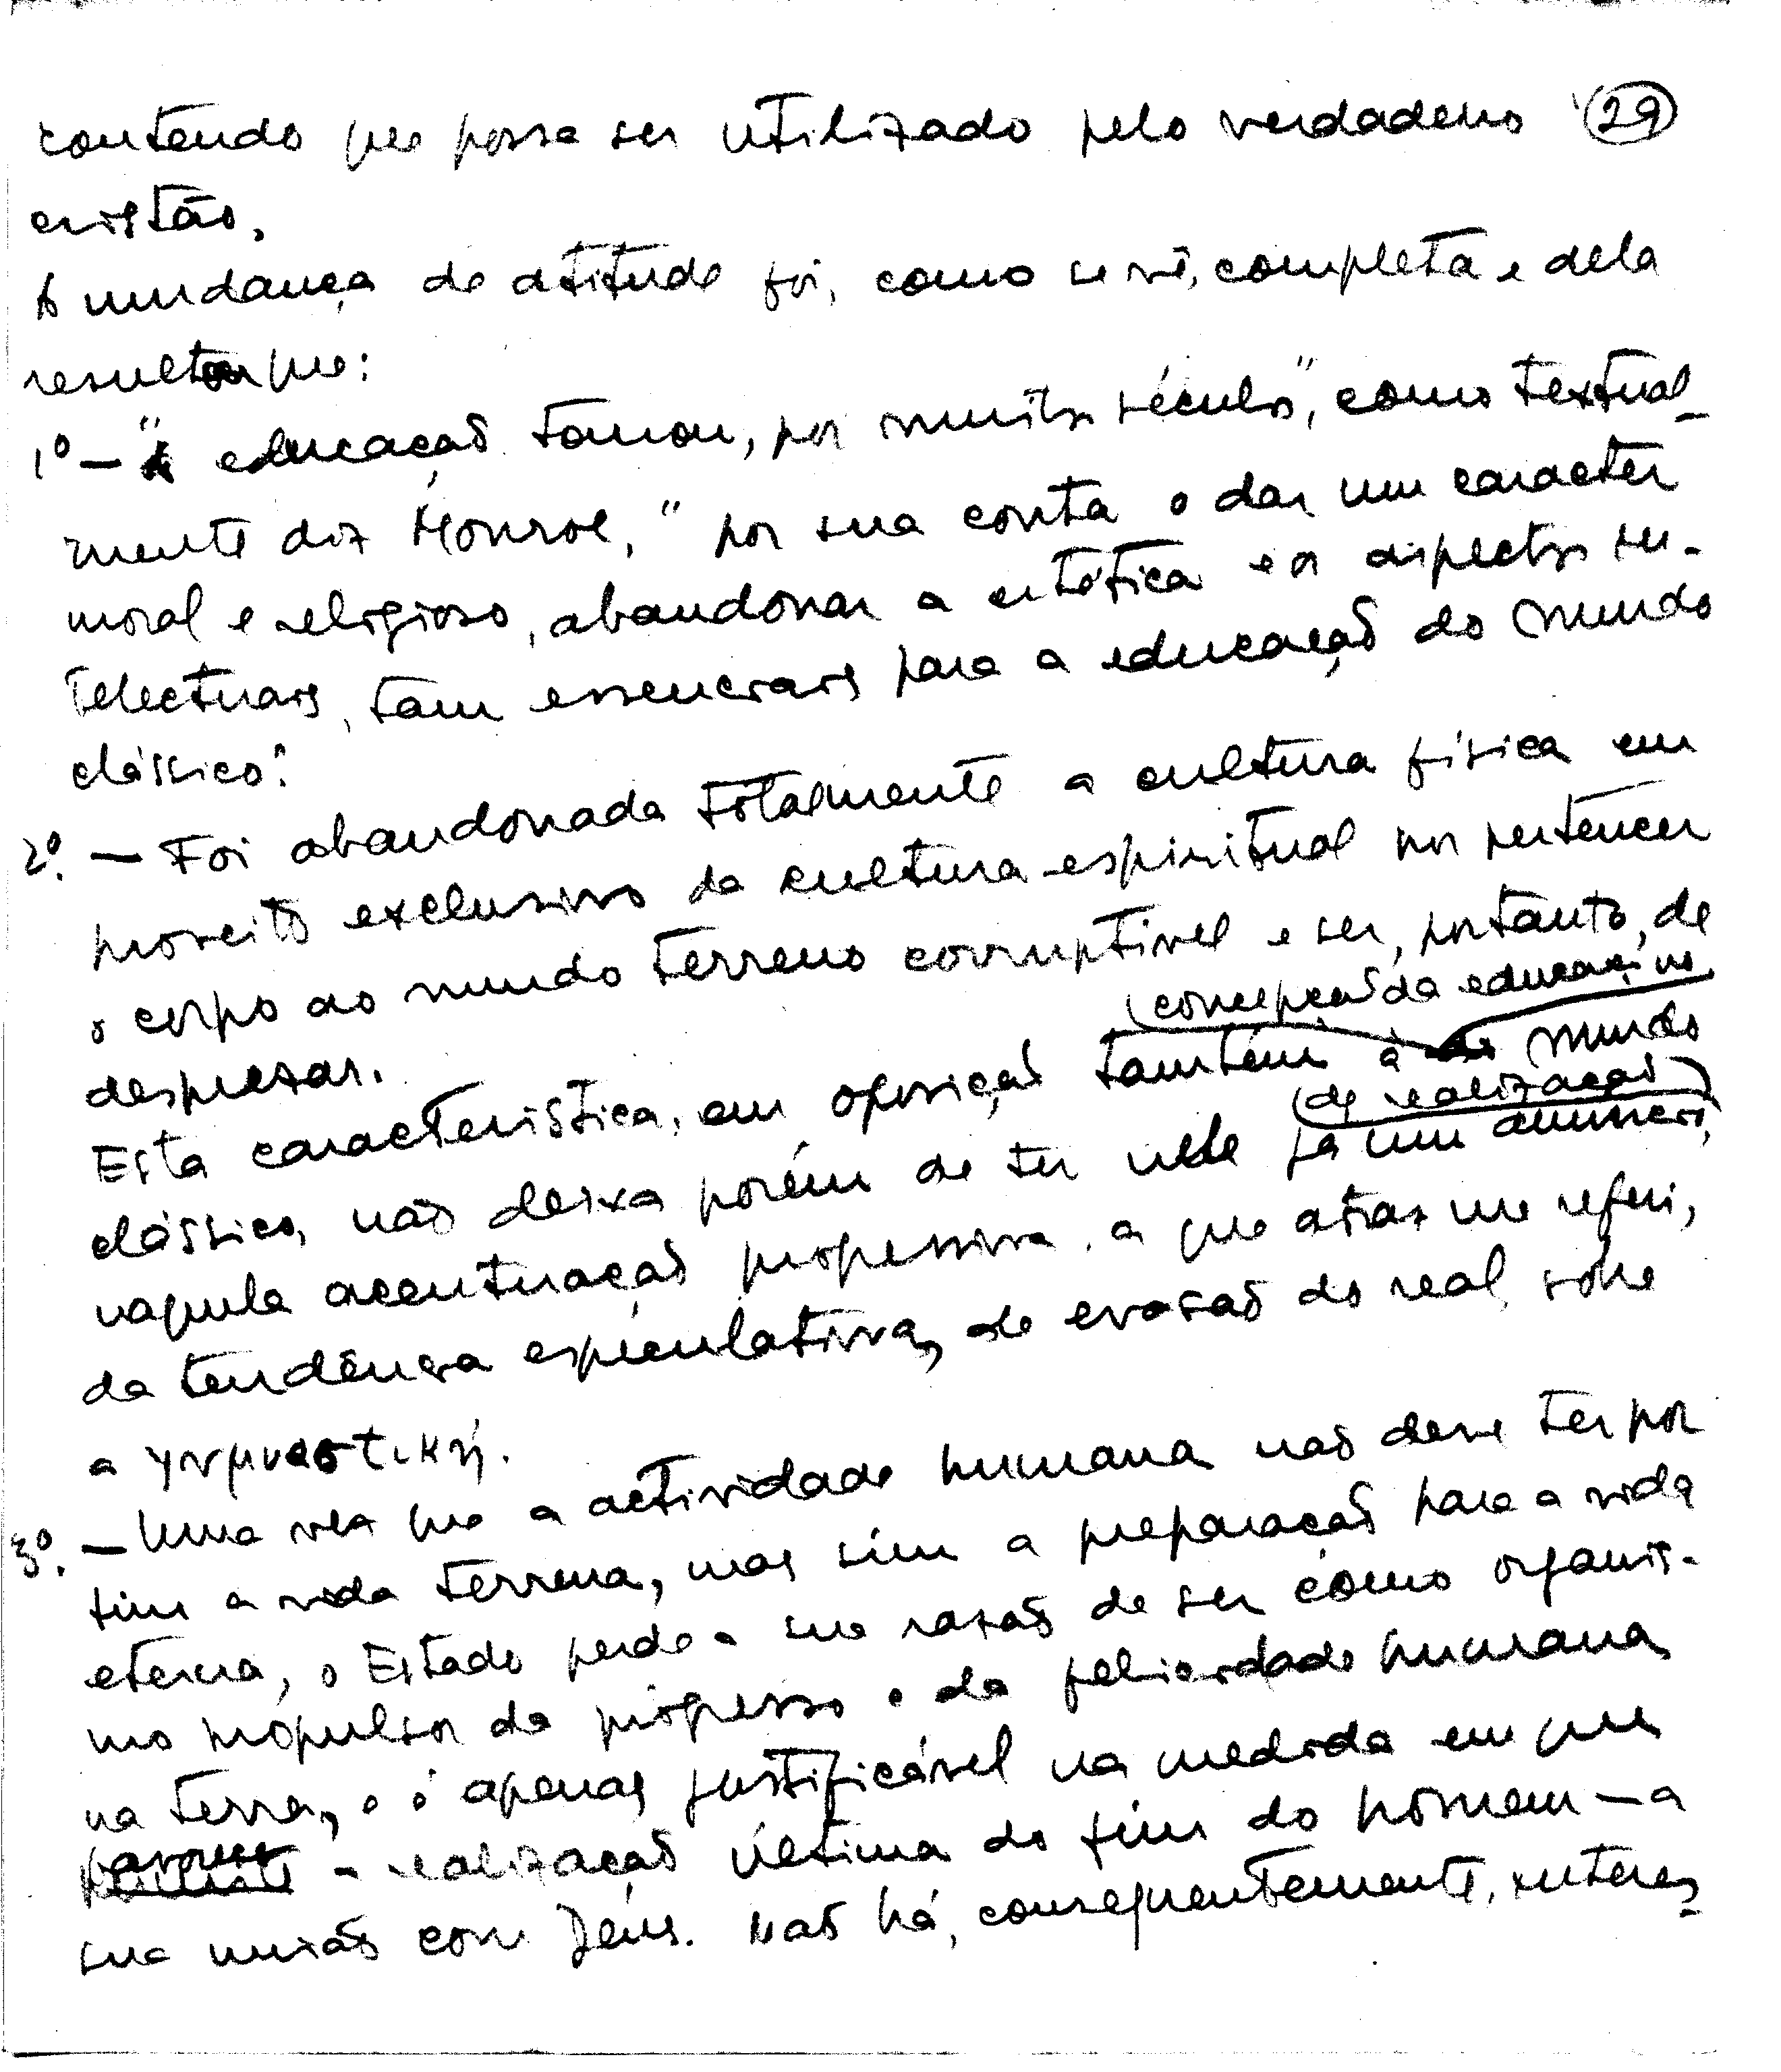 contendo que possa ser utilizado pelo verdadeiro (29)
cristão.
A mudança de atitude foi, como se vê, completa e dela
resultou que:
1º - "A educação tomou, por muitos séculos", como textual-
mente diz Monroe, "por sua conta o dar um caracter
moral e religioso, abandonar a estética e os aspectos in-
telectuais, tam essenciais para a educação do mundo
clássico."
2º. - Foi abandonada totalmente a cultura física em
proveito exclusivo da cultura espiritual por pertencer
o corpo ao mundo terreno corruptível e ser, portanto, de
desprezar.
(concepção da educação no
Esta característica, em oposição também à mundo
(de realização)
clássico, não deixa porém de ter nele já um anúncio,
naquela acentuação progressiva, a que atraz me referi,
da tendência especulativa, de evasão do real, sobre
a γυμναστική.
3º. - Uma vez que a actividade humana não deve ter por
fim a vida terrena, mas sim a preparação para a vida
eterna, o Estado perde a sua razão de ser como organis-
mo propulsor do progresso e da felicidade humana
na terra, e é apenas justificável na medida em que
favorece a realização última do fim do homem - a
sua união com Deus. Não há, consequentemente, interes-